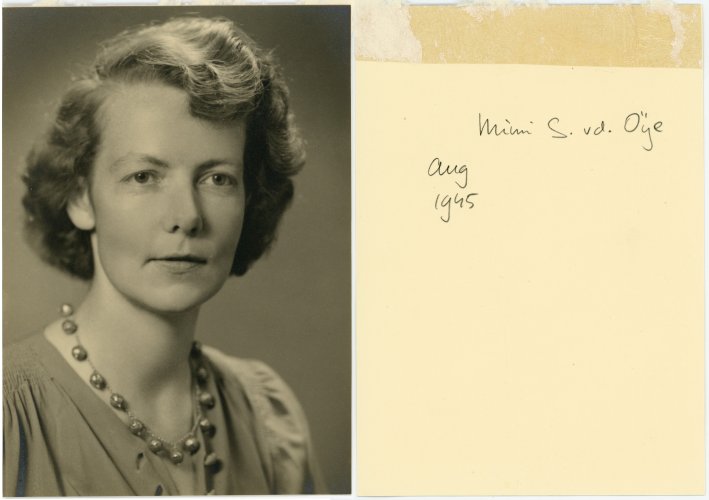 Mimi S. vd. Oÿe
Aug
1945